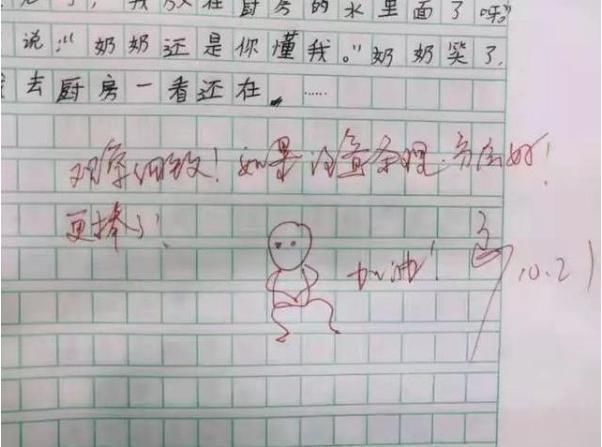 我放在厨房的水里面了呀。”
说:“奶奶还是你懂我。”奶奶笑了,
去厨房一看还在,……
观察细致!如果注意条理、书写好!
更棒了!
加油!
10.21